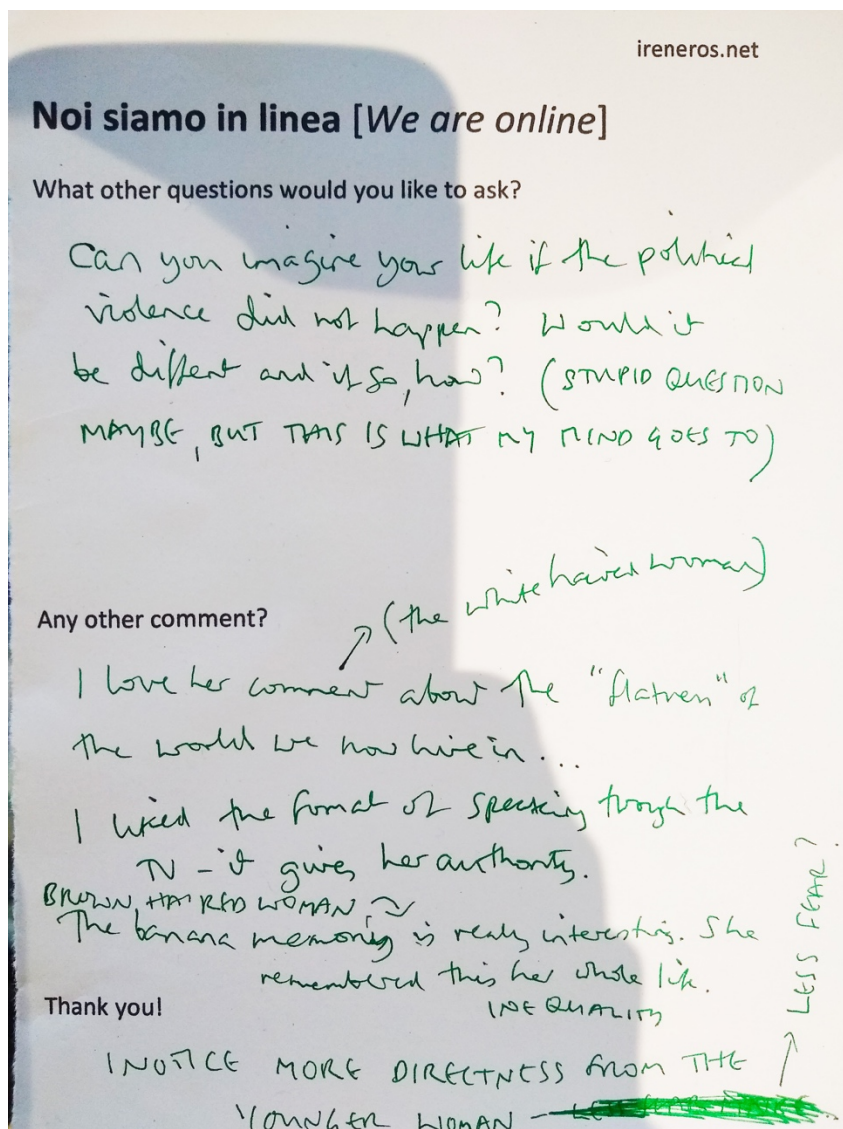 ireneros.net
Noi siamo in linea [We are online]
What other questions would you like to ask?
Can you imagine your life if the political
violence did not happen? Would it
be different and if so, how? (STUPID QUESTION
MAYBE, BUT THIS IS WHAT MY MIND GOES TO)
(the white haired woman)
Any other comment?
I love her comment about the "flatness" of
the world we now live in...
I liked the format of speaking through the
TV - it gives her authority.
BROWN HAIRED WOMAN
The banana memory is really interesting. She
remembered this her whole life.
INEQUALITY
Thank you!
I NOTICE MORE DIRECTNESS FROM THE
YOUNGER WOMAN -
LESS FEAR?